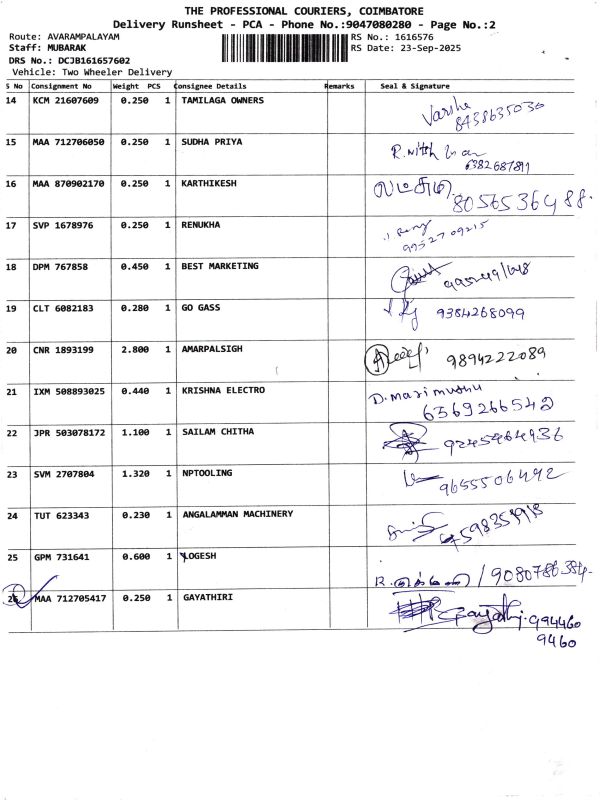 THE PROFESSIONAL COURIERS, COIMBATORE
Delivery Runsheet - PCA - Phone No.:9047080280 - Page No.:2
Route: AVARAMPALAYAM RS No.: 1616576
Staff: MUBARAK RS Date: 23-Sep-2025
DRS No.: DCJB161657602
Vehicle: Two Wheeler Delivery
S No Consignment No Weight PCS Consignee Details Remarks Seal & Signature
14 KCM 21607609 0.250 1 TAMILAGA OWNERS Varsha
8438635036
15 MAA 712706050 0.250 1 SUDHA PRIYA
16 MAA 870902170 0.250 1 KARTHIKESH
8056536488.
17 SVP 1678976 0.250 1 RENUKHA
9952709215
18 DPM 767858 0.450 1 BEST MARKETING
19 CLT 6082183 0.280 1 GO GASS 9384268099
20 CNR 1893199 2.800 1 AMARPALSIGH 9894222089
21 IXM 508893025 0.440 1 KRISHNA ELECTRO D. marimuthu
6369266542
22 JPR 503078172 1.100 1 SAILAM CHITHA 9245464936
23 SVM 2707804 1.320 1 NPTOOLING
9655506492
24 TUT 623343 0.230 1 ANGALAMMAN MACHINERY
25 GPM 731641 0.600 1 YOGESH
R. / 9080786384
26 MAA 712705417 0.250 1 GAYATHIRI Gayathri. 994460
9460